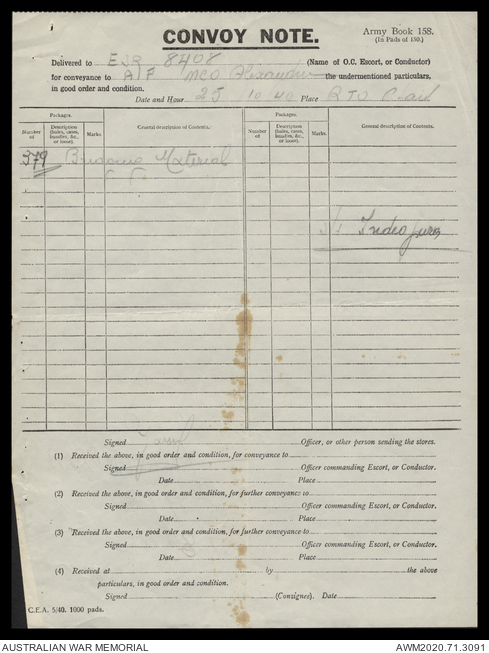 CONVOY NOTE.
Army Book 158.
(In Pads of 150.)
Delivered to E J R 8408 (Name of O.C. Escort, or Conductor)
for conveyance to A I F MCO Alexandria the undermentioned particulars,
in good order and condition.
Date and Hour 25 10 40 Place R T O
Packages. Packages.
Number of Description (bales, cases, bundles, &c., or loose). Marks. General description of Contents. Number of Description (bales, cases, bundles, &c., or loose). Marks. General description of Contents.
379 Bridging Material
Signed Officer, or other person sending the stores.
(1) Received the above, in good order and condition, for conveyance to
Signed Officer commanding Escort, or Conductor.
Date Place
(2) Received the above, in good order and condition, for further conveyance to
Signed Officer commanding Escort, or Conductor.
Date Place
(3) Received the above, in good order and condition, for further conveyance to
Signed Officer commanding Escort, or Conductor.
Date Place
(4) Received at by the above
particulars, in good order and condition.
Signed (Consignee). Date
C.E.A. 5/40. 1000 pads.
AUSTRALIAN WAR MEMORIAL AWM2020.71.3091